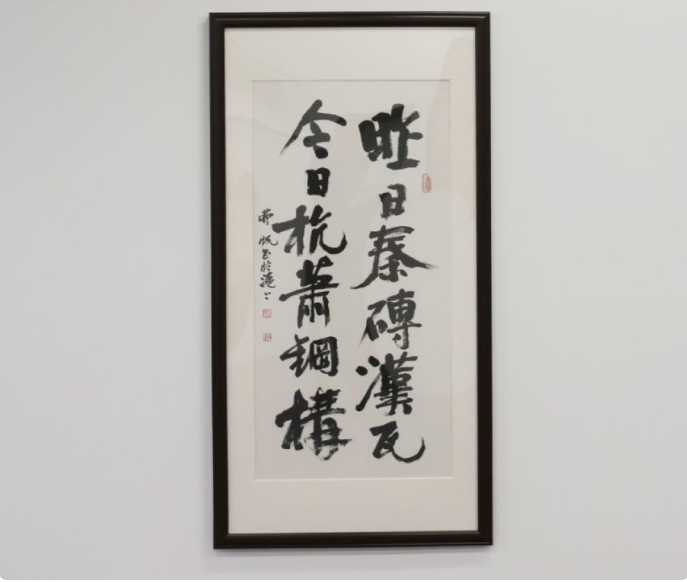 昨日秦磚漢瓦
今日杭蕭鋼構
書於滬上